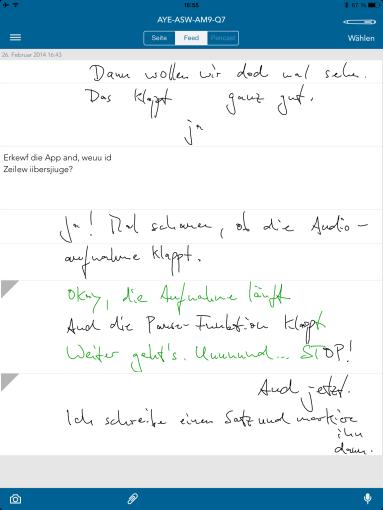 16:55
67 %
AYE-ASW-AM9-Q7
Seite Feed Pencast
Wählen
26. Februar 2014 16:43
Dann wollen wir doch mal sehen.
Das klappt ganz gut.
ja
Erkewf die App and, weuu id
Zeilew iibersjiuge?
Ja! Mal schauen, ob die Audio-
aufnahme klappt.
Okay, die Aufnahme läuft
Auch die Pause-Funktion klappt
Weiter geht's. Uuuuuund... STOP!
Auch jetzt.
Ich schreibe einen Satz und markiere
ihn
dann.